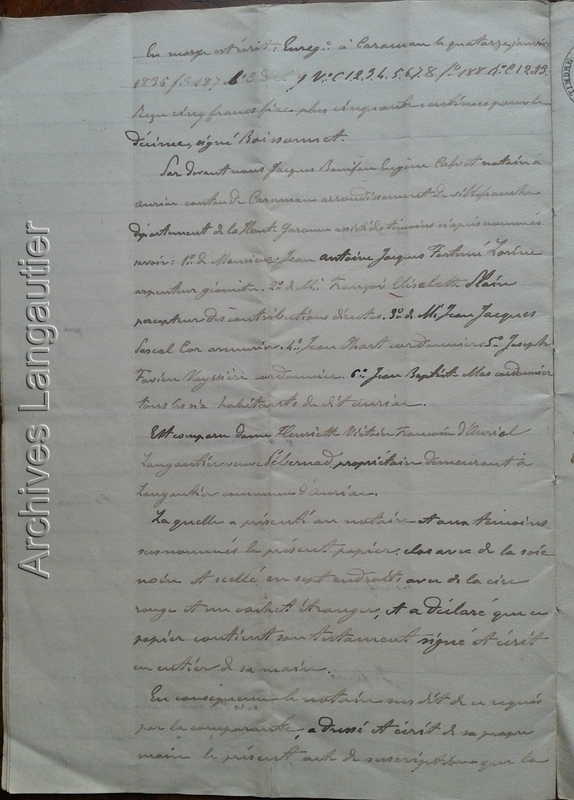 En marge est écrit: Enreg.é à Caraman le quatorze janvier
1836 f.o 187 V.o C 1.2.3.4.5.6.7.8 f.o 188 R.o C 1.2 et 3.
Reçu cinq francs fixe, plus cinquante centimes pour le
décime, signé Boissonnet.
Par devant nous Jacques Eugène notaire à
auriac canton de Caraman arrondissement de villefranche
département de la Haute Garonne assisté des témoins ci après nommés
savoir: 1.o de Monsieur Jean antoine Jacques Fortuné
arpenteur géomètre. 2.o de M.r François Elisabeth
percepteur des contributions directes. 3.o de M.r Jean Jacques
Pascal Cor armurier. 4.o Jean cordonnier 5.o Joseph
Vayssière cordonnier. 6.o Jean Baptiste Mas cordonnier
tous les six habitants du dit auriac.
Est comparu dame Henriette Victoire Françoise d'Auriol
Langautier veuve propriétaire demeurant à
Langautier commune d'auriac.
La quelle a présenté au notaire et aux témoins
susnommés le présent papier, clos avec de la soie
noire et scellé en sept endroits avec de la cire
rouge et un cachet étranger, et a déclaré que ce
papier contient son testament signé et écrit
en entier de sa main.
En conséquence le notaire sus dit de ce requis
par la comparante, a dressé et écrit de sa propre
main le présent acte de suscription que la
Archives Langautier
TIMBRE